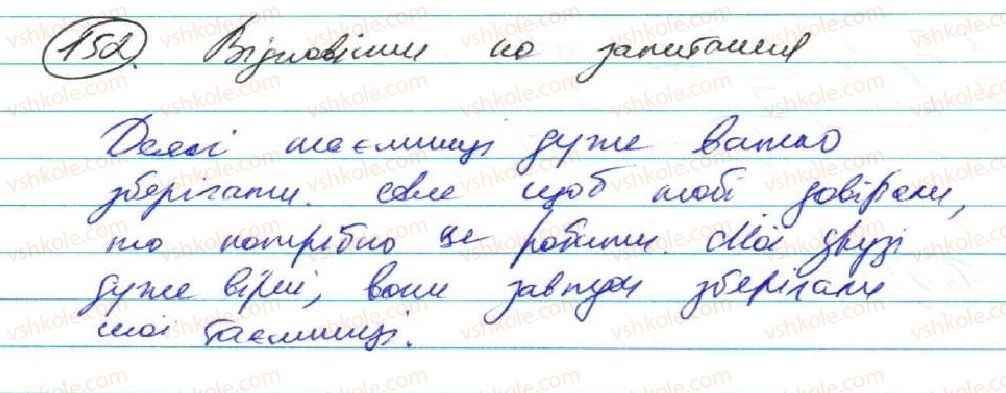 152. Відповісти на запитання
Деякі таємниці дуже важко
зберігати. Але щоб тобі довіряли,
то потрібно це робити. Мої друзі
дуже вірні, вони завжди зберігали
мої таємниці.